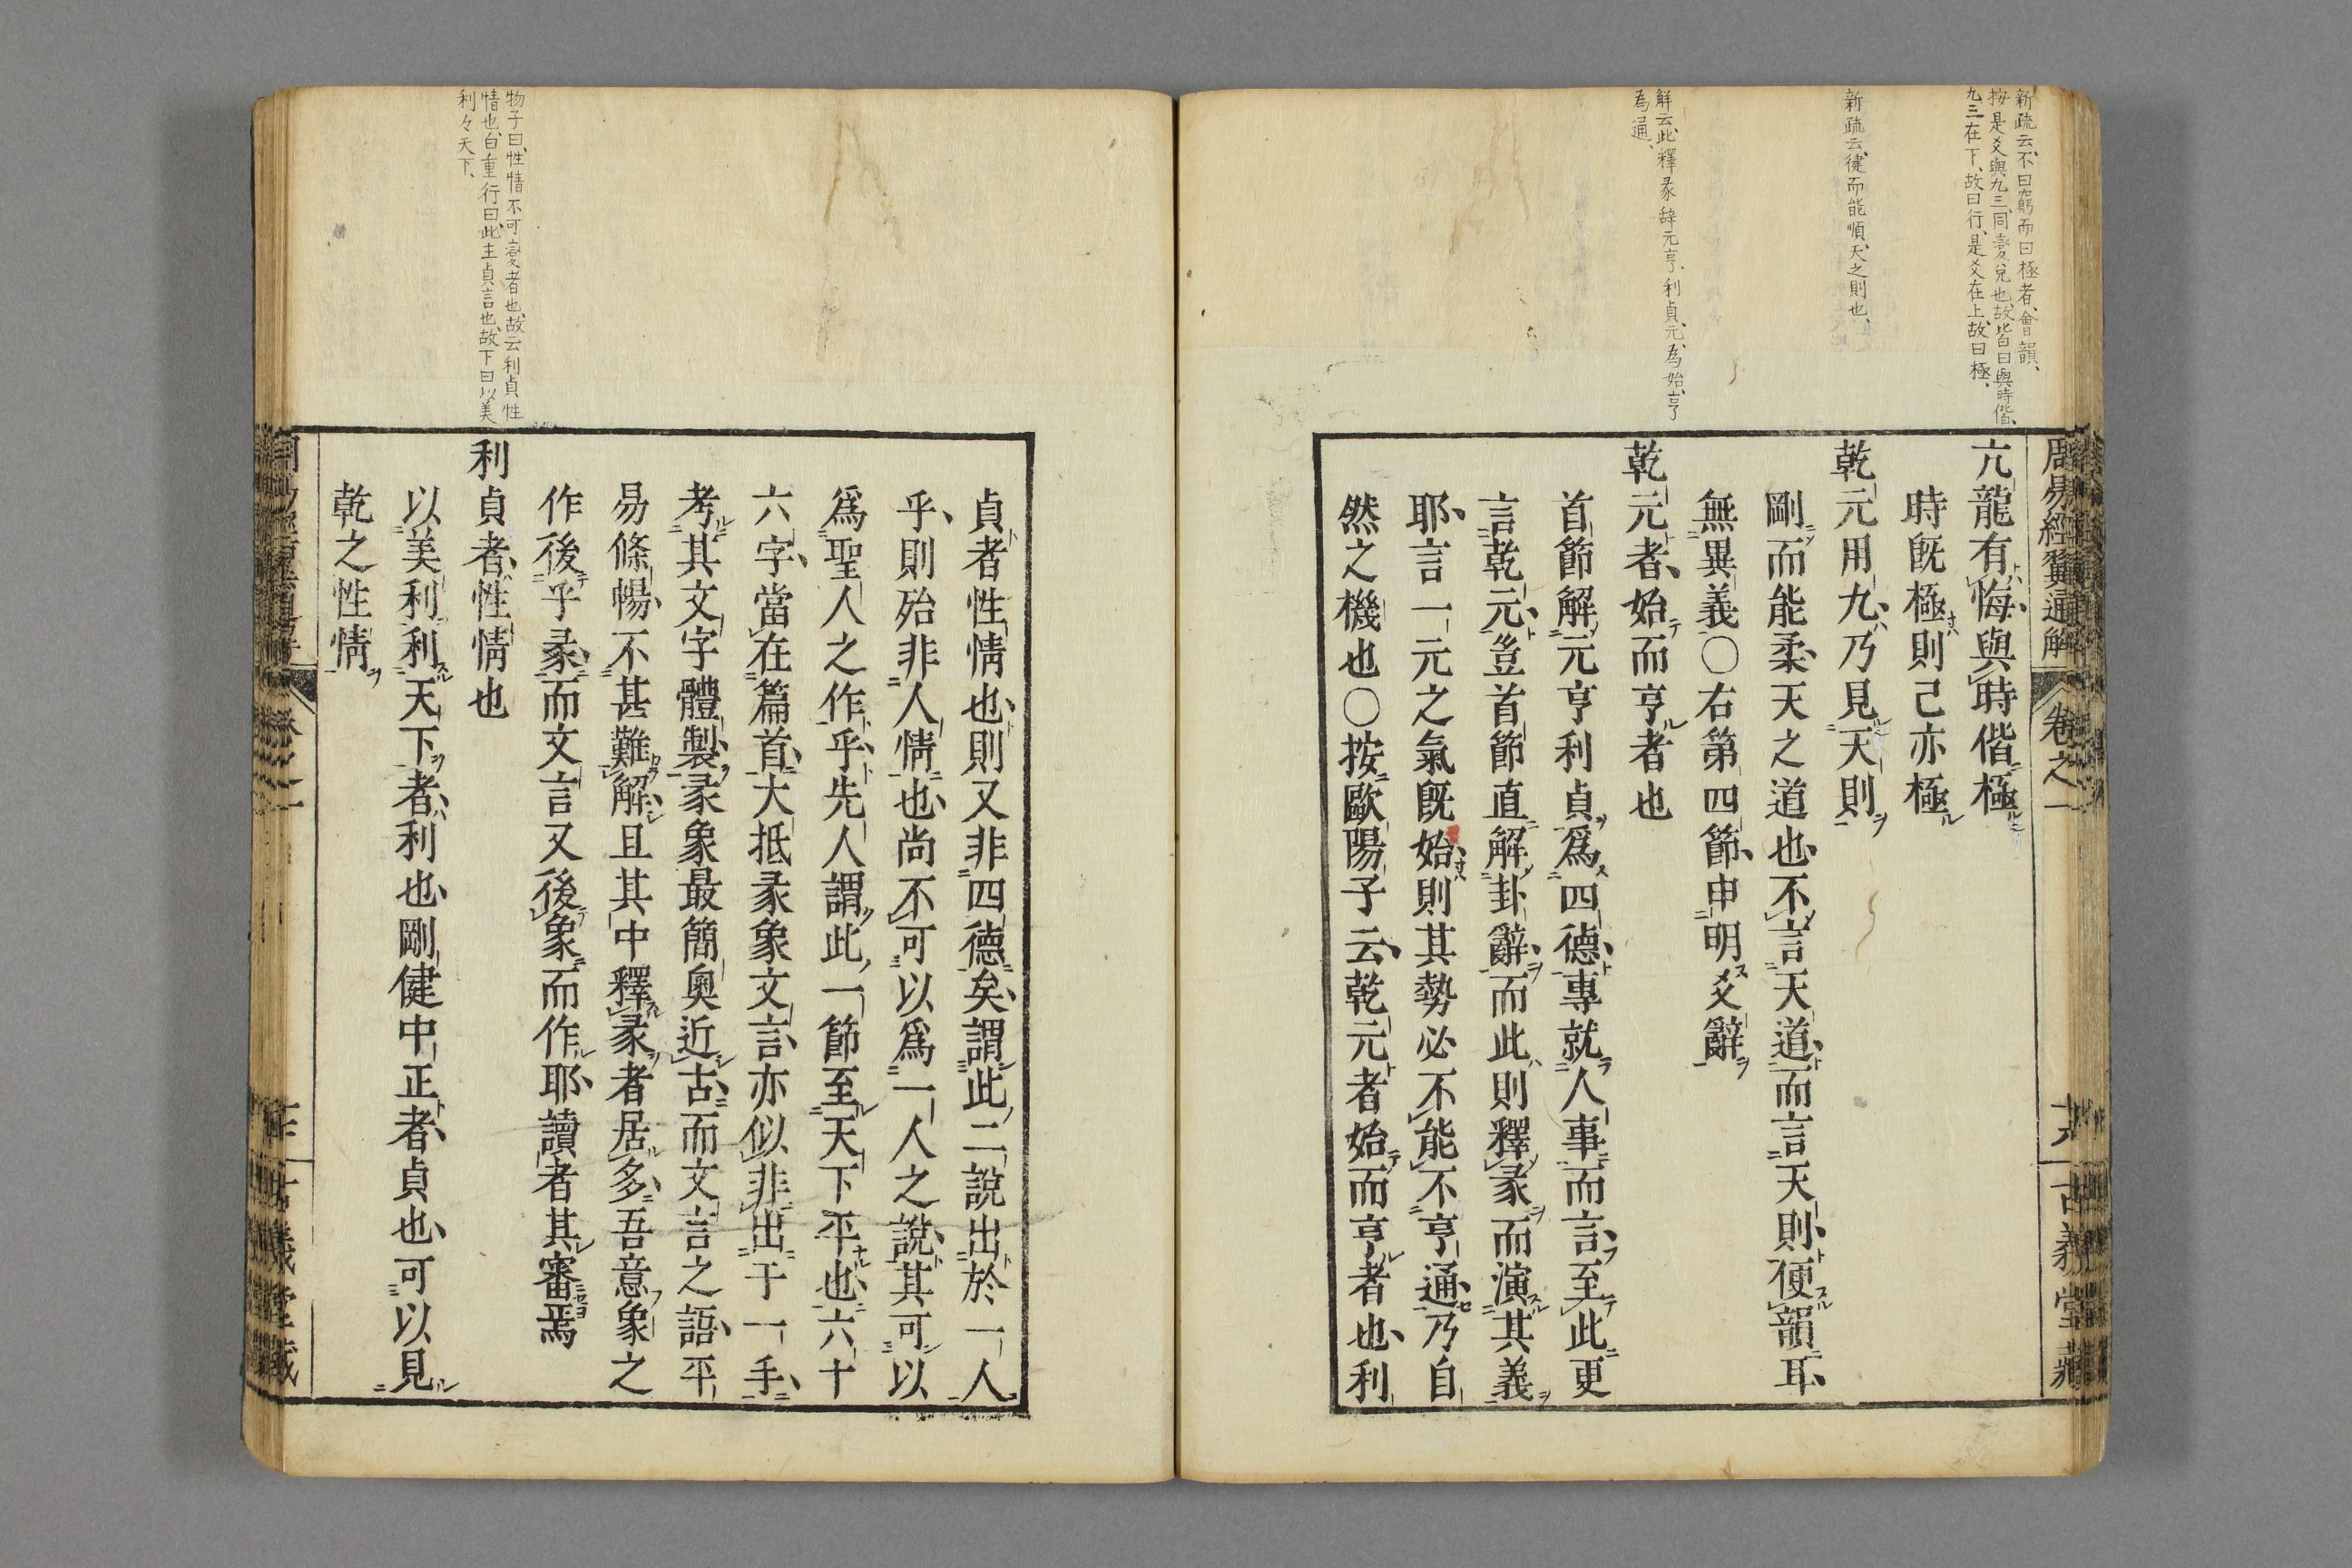 新疏云、不曰窮而曰極者、會韻、
按是爻與九三同變兌也、故皆曰與時偕、
九三在下、故曰行、是爻在上、故曰極、
新疏云、健而能順、天之則也、
解云、此釋彖辞元亨利貞、元為始、亨
為通、
周易經翼通解
卷之一
古義堂藏
亢龍有悔、與時偕極
時旣極則己亦極
乾元用九、乃見天則
剛而能柔、天之道也、不言天道、而言天則、便韻耳、
無異義○右第四節、申明爻辭
乾元者、始而亨者也
首節解元亨利貞爲四德、專就人事而言、至此更
言乾元、豈首節直解卦辭、而此則釋彖而演其義
耶、言一元之氣旣始、則其勢必不能不亨通、乃自
然之機也○按歐陽子云、乾元者始而亨者也、利
物子曰、性情不可変者也、故云利貞性
情也、白重行曰、此主貞言也、故下曰以美
利々天下、
貞者性情也、則又非四德矣、謂此二說出於一人
乎、則殆非人情也、尚不可以爲一人之說、其可以
爲聖人之作乎、先人謂此一節至天下平也、六十
六字、當在篇首、大抵彖象文言、亦似非出于一手、
考其文字體製、彖象最簡奥近古、而文言之語、平
易條暢、不甚難解、且其中釋彖者居多、吾意象之
作後乎彖、而文言又後象而作耶、讀者其審焉
利貞者、性情也
以美利利天下者、利也、剛健中正者、貞也、可以見
乾之性情